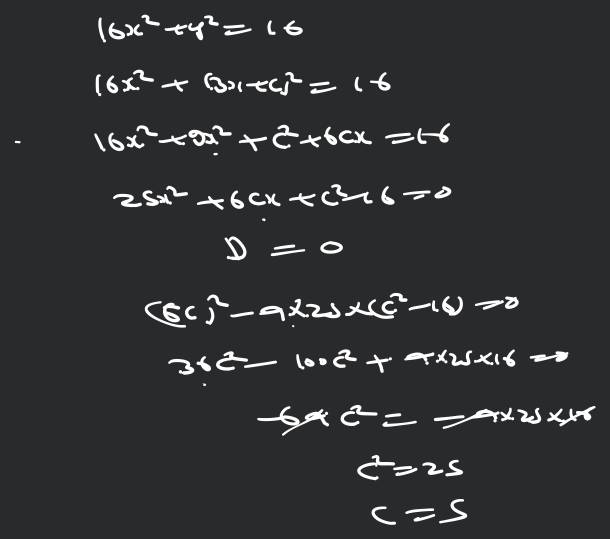 16x² + y² = 16
16x² + (3x+c)² = 16
16x² + 9x² + c² + 6cx = 16
25x² + 6cx + c² - 16 = 0
D = 0
(6c)² - 4×25×(c² - 16) = 0
36c² - 100c² + 4×25×16 = 0
-64c² = -4×25×16
c² = 25
c = 5